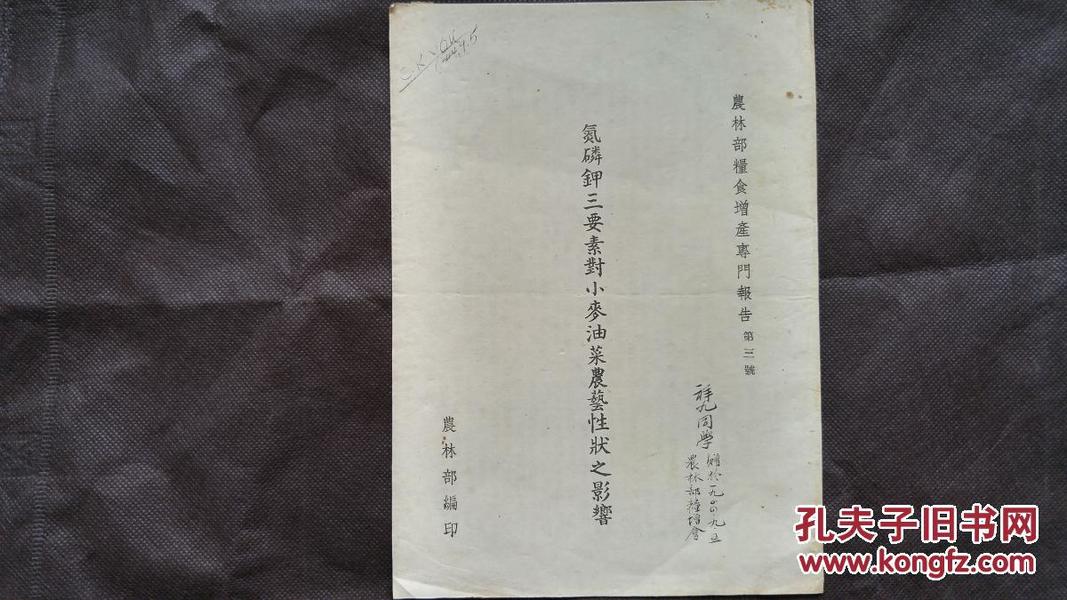 農林部糧食增產專門報告 第三號
祥九同學
贈於一九四四九五
農林部糧增會
氮磷鉀三要素對小麥油菜農藝性狀之影響
農林部編印
孔夫子旧书网
www.kongfz.com